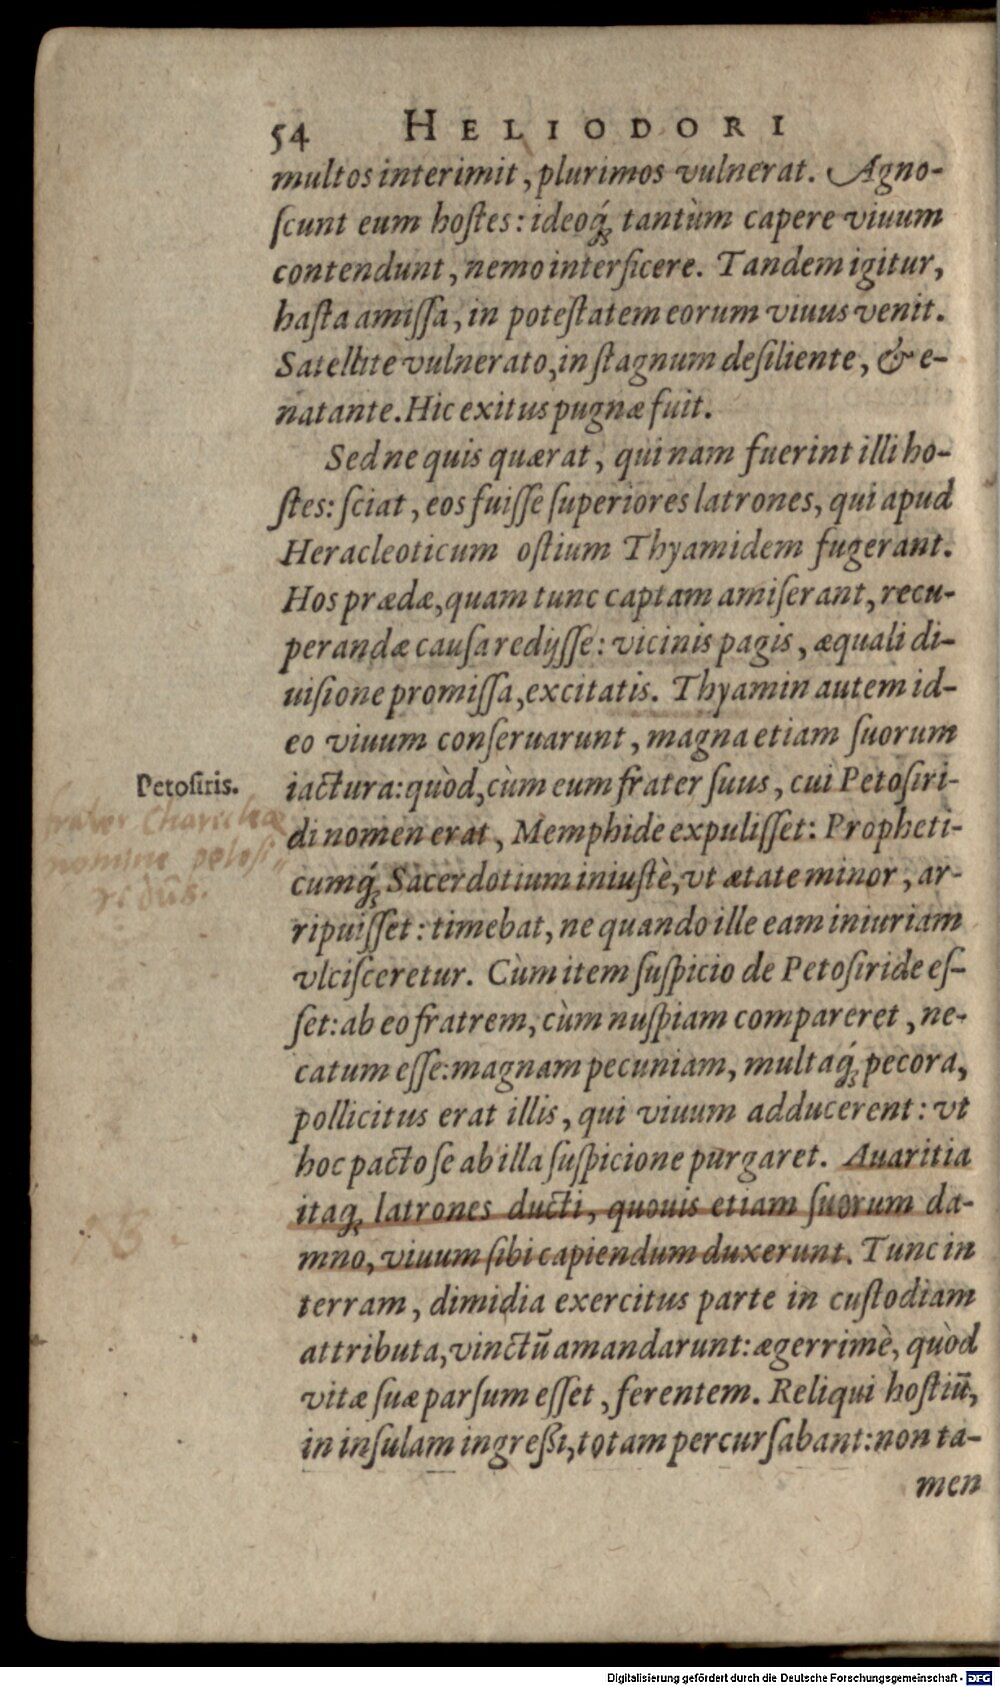 54 HELIODORI
multos interimit, plurimos vulnerat. Agno-
ſcunt eum hoſtes: ideoq́; tantùm capere viuum
contendunt, nemo interficere. Tandem igitur,
haſta amiſſa, in poteſtatem eorum viuus venit.
Satellite vulnerato, in ſtagnum deſiliente, & e-
natante. Hic exitus pugnæ fuit.
Sed ne quis quærat, qui nam fuerint illi ho-
ſtes: ſciat, eos fuiſſe ſuperiores latrones, qui apud
Heracleoticum oſtium Thyamidem fugerant.
Hos prædæ, quam tunc captam amiſerant, recu-
perandæ cauſa redijſſe: vicinis pagis, æquali di-
uiſione promiſſa, excitatis. Thyamin autem id-
eo viuum conſeruarunt, magna etiam ſuorum
Petoſiris.
iactura: quòd, cùm eum frater ſuus, cui Petoſiri-
di nomen erat, Memphide expuliſſet: Propheti-
cumq́; Sacerdotium iniuſtè, vt ætate minor, ar-
ripuiſſet: timebat, ne quando ille eam iniuriam
vlciſceretur. Cùm item ſuſpicio de Petoſiride eſ-
ſet: ab eo fratrem, cùm nuſpiam compareret, ne-
catum eſſe: magnam pecuniam, multaq́; pecora,
pollicitus erat illis, qui viuum adducerent: vt
hoc pacto ſe ab illa ſuſpicione purgaret. Auaritia
itaq; latrones ducti, quouis etiam ſuorum da-
mno, viuum ſibi capiendum duxerunt. Tunc in
terram, dimidia exercitus parte in cuſtodiam
attributa, vinctū amandarunt: ægerrimè, quòd
vitæ ſuæ parſum eſſet, ferentem. Reliqui hoſtiū,
in inſulam ingreßi, totam percurſabant: non ta-
men
frater Charicleæ
nomine
NB
Digitalisierung gefördert durch die Deutsche Forschungsgemeinschaft - DFG